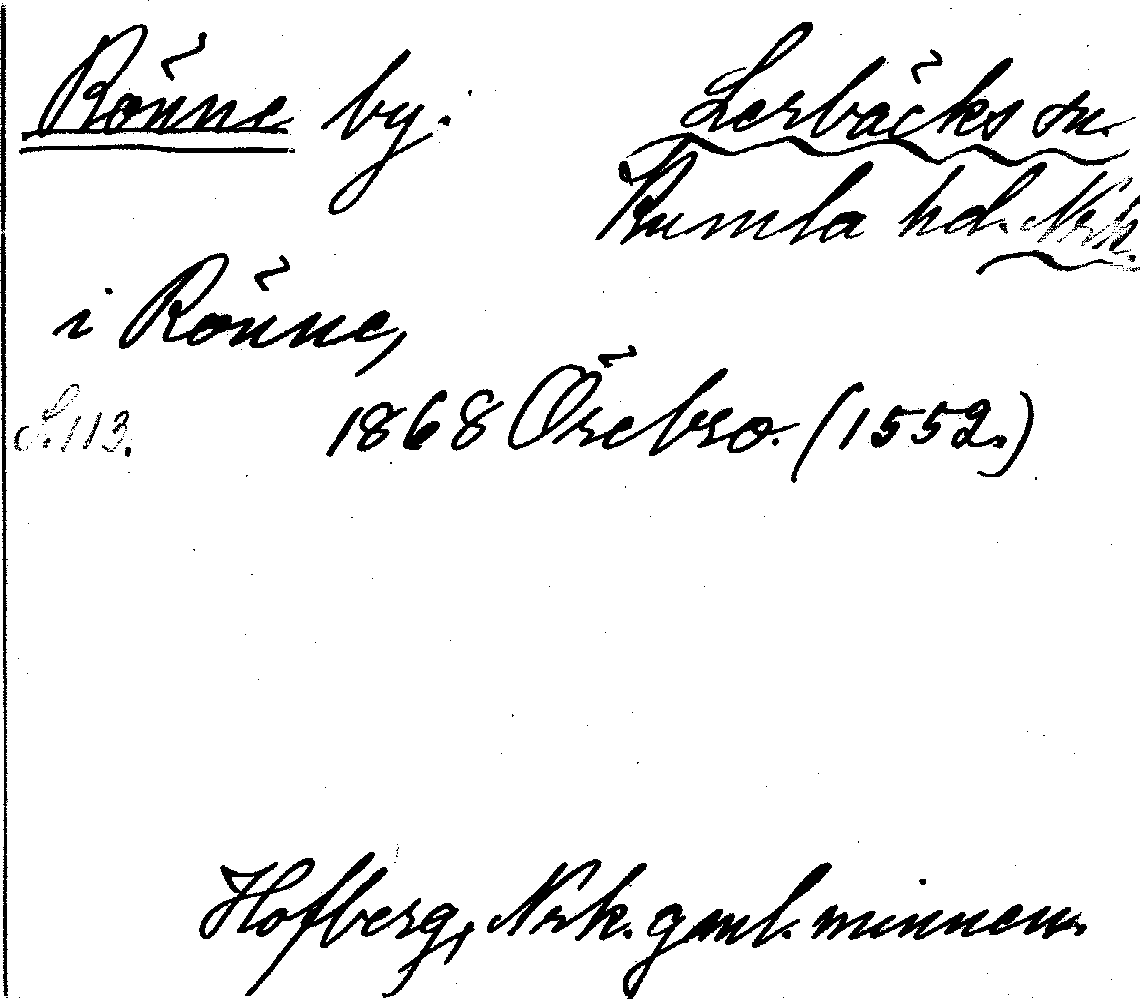 Rönne by. Lerbäcks sn.
Kumla hd. Nrk.
i Rönne,
S. 113. 1868 Örebro. (1552.)
Hofberg, Nrk. gaml. minnen.